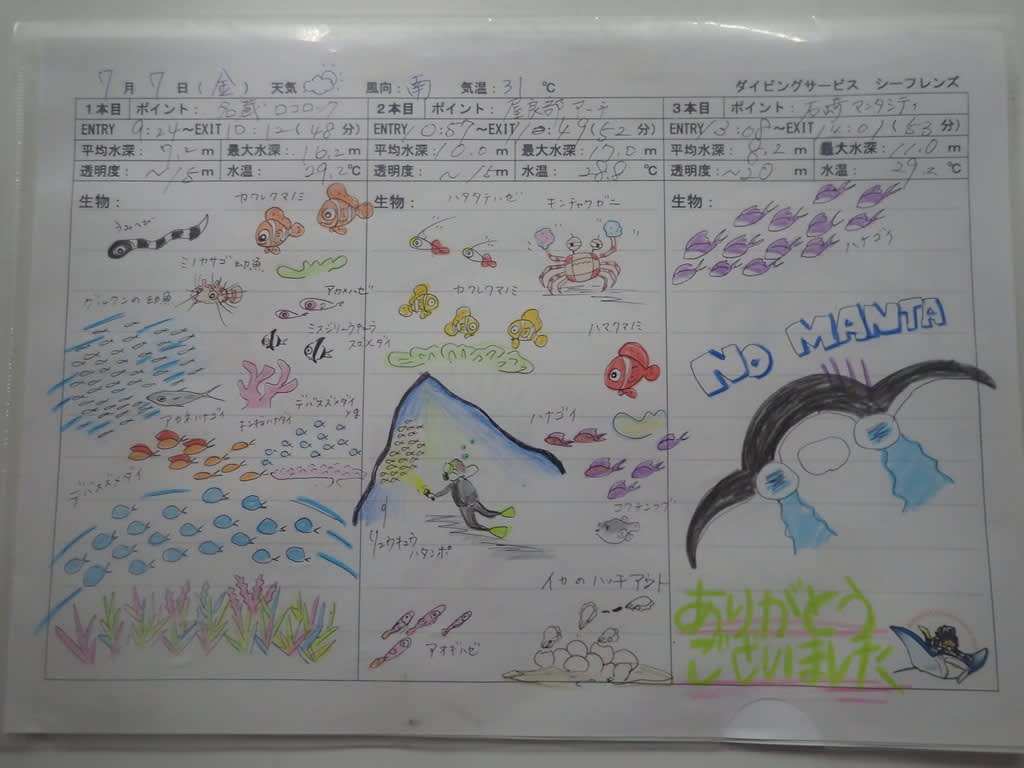 7月7日(金) 天気 風向:南 気温:31℃ ダイビングサービス シーフレンズ
1本目 ポイント: 名蔵 ロロロック
ENTRY 9:24~EXIT 10:12(48分)
平均水深: 7.2m 最大水深: 16.2m
透明度: ~15m 水温: 29.2℃
生物:
ウミヘビ
カクレクマノミ
ミノカサゴ幼魚
グルクンの幼魚
アカメハゼ
ミスジリュウキュウ
スズメダイ
アカネハナゴイ
キンギョハナダイ
デバスズメダイ
デバスズメダイ
2本目 ポイント: 屋良部アーチ
ENTRY 10:57~EXIT 49(52分)
平均水深: 10.0m 最大水深: 17.0m
透明度: ~15m 水温: 28.8℃
生物:
ハタタテハゼ
キンチャクガニ
カクレクマノミ
ハマクマノミ
ハナゴイ
コクテンフグ
リュウキュウ
ハタンポ
イカのハッチアウト
アオギハゼ
3本目 ポイント: 石崎マンタシティ
ENTRY 13:08~EXIT 14:01(53分)
平均水深: 8.2m 最大水深: 11.0m
透明度: ~20m 水温: 29.2℃
生物:
ハナゴイ
NO MANTA
ありがとう
ございました